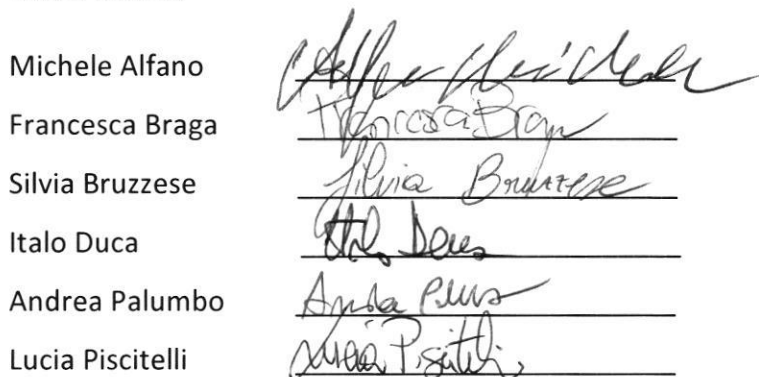 Michele Alfano Alfano Michele
Francesca Braga Francesca Braga
Silvia Bruzzese Silvia Bruzzese
Italo Duca Italo Duca
Andrea Palumbo Andrea
Lucia Piscitelli Lucia Piscitelli